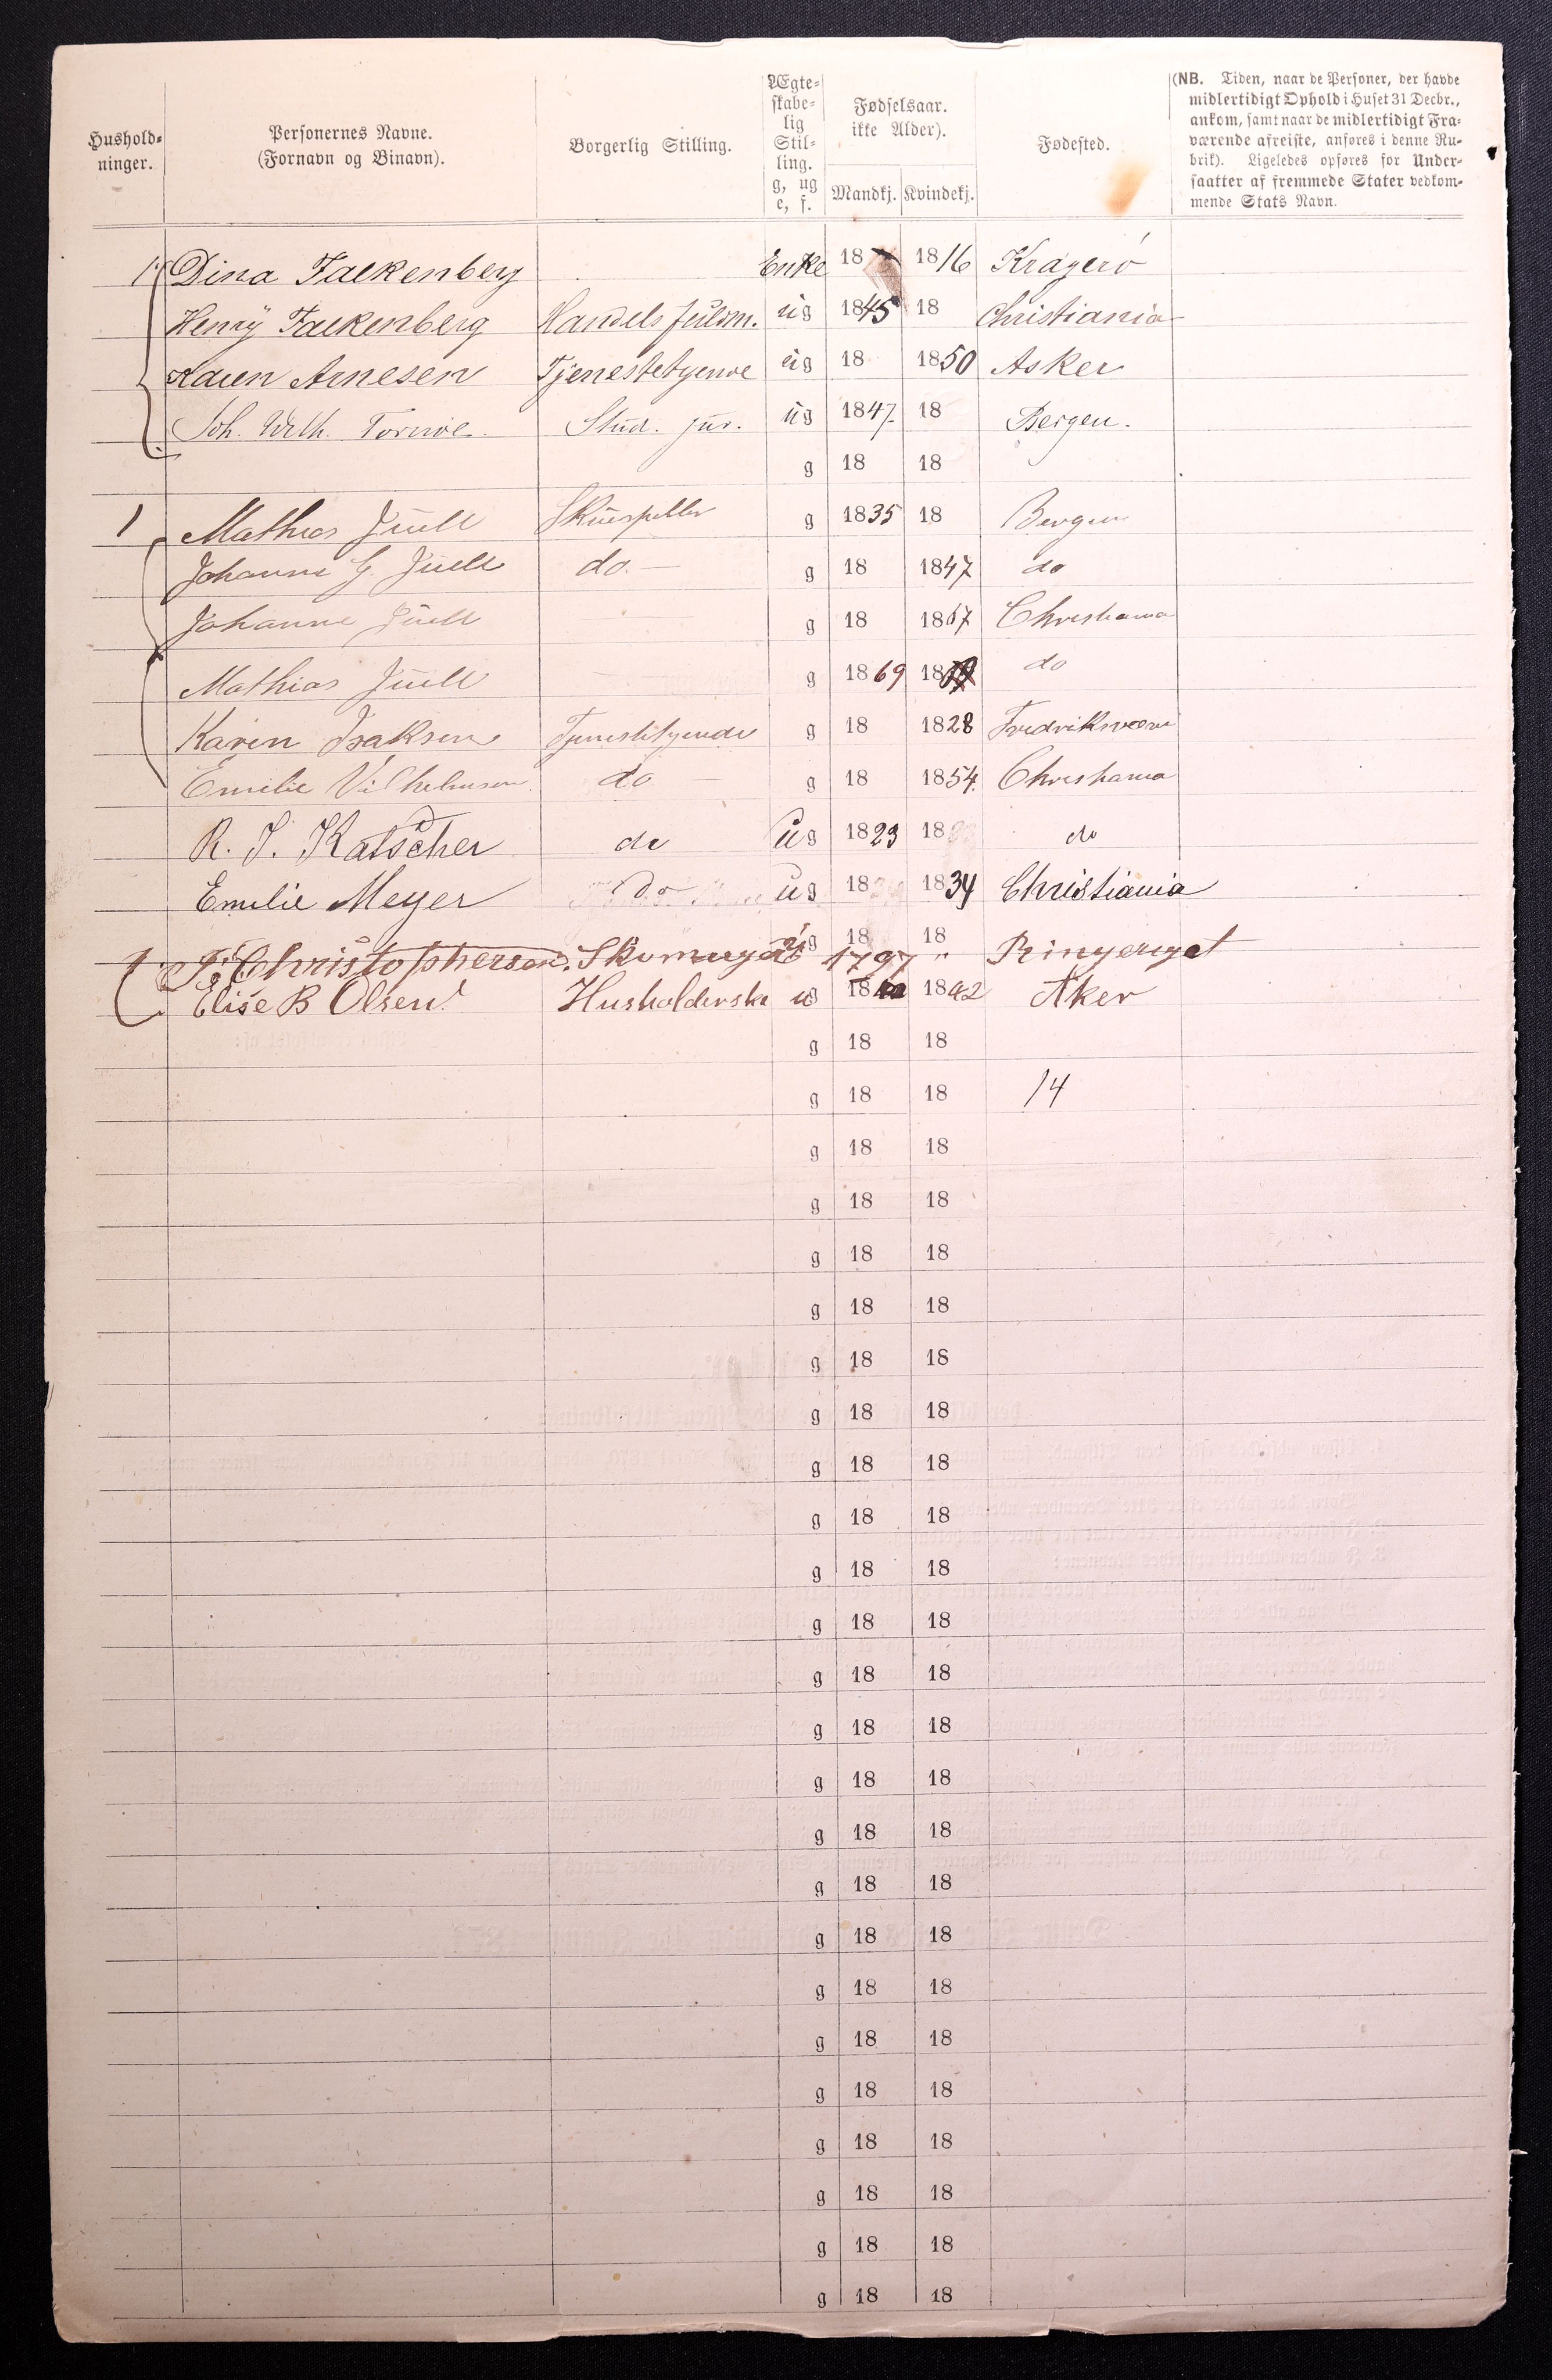 Hushold-
ninger.
Personernes Navne.
(Fornavn og Binavn).
Borgerlig Stilling.
Ægte-
skabe-
lig
Stil-
ling.
g, ug
e, f.
Fødselsaar.
ikke Alder).
Mandkj. Kvindekj.
Fødested.
(NB. Tiden, naar de Personer, der havde
midlertidigt Ophold i Huset 31 Decbr.,
ankom, samt naar de midlertidigt Fra-
værende afreiste, anføres i denne Ru-
brik). Ligeledes opføres for Under-
saatter af fremmede Stater vedkom-
mende Stats Navn.
1 Dina Falkenberg Enke 18 1816 Kragerö
Henry Falkenberg Handels fuldm. ug 1845 18 Christiania
Karen Arnesen Tjenestetyende ug 18 1850 Asker
Joh. Wilh. Stud. jur. ug 1847 18 Bergen.
g 18 18
1 Mathias Juell Skuespiller g 1835 18 Bergen
Johanne G. Juell do - g 18 1847 do
Johanne Juell g 18 1867 Christiania
Mathias Juell g 1869 18 do
Karen Isaksen Tjenestetyende g 18 1828 Fredriksværn
Emilie Vilhelmsen do - g 18 1854 Christiania
R. J. Katscher do ug 1823 18 do
Emilie Meyer do ug 18 1834 Christiania
g 18 18
J. Christophersen. Skomager 1797 " Ringeriget
Elise B Olsen Husholderske ug 18 1842 Aker
g 18 18
g 18 18 14
g 18 18
g 18 18
g 18 18
g 18 18
g 18 18
g 18 18
g 18 18
g 18 18
g 18 18
g 18 18
g 18 18
g 18 18
g 18 18
g 18 18
g 18 18
g 18 18
g 18 18
g 18 18
g 18 18
g 18 18
g 18 18
g 18 18
g 18 18